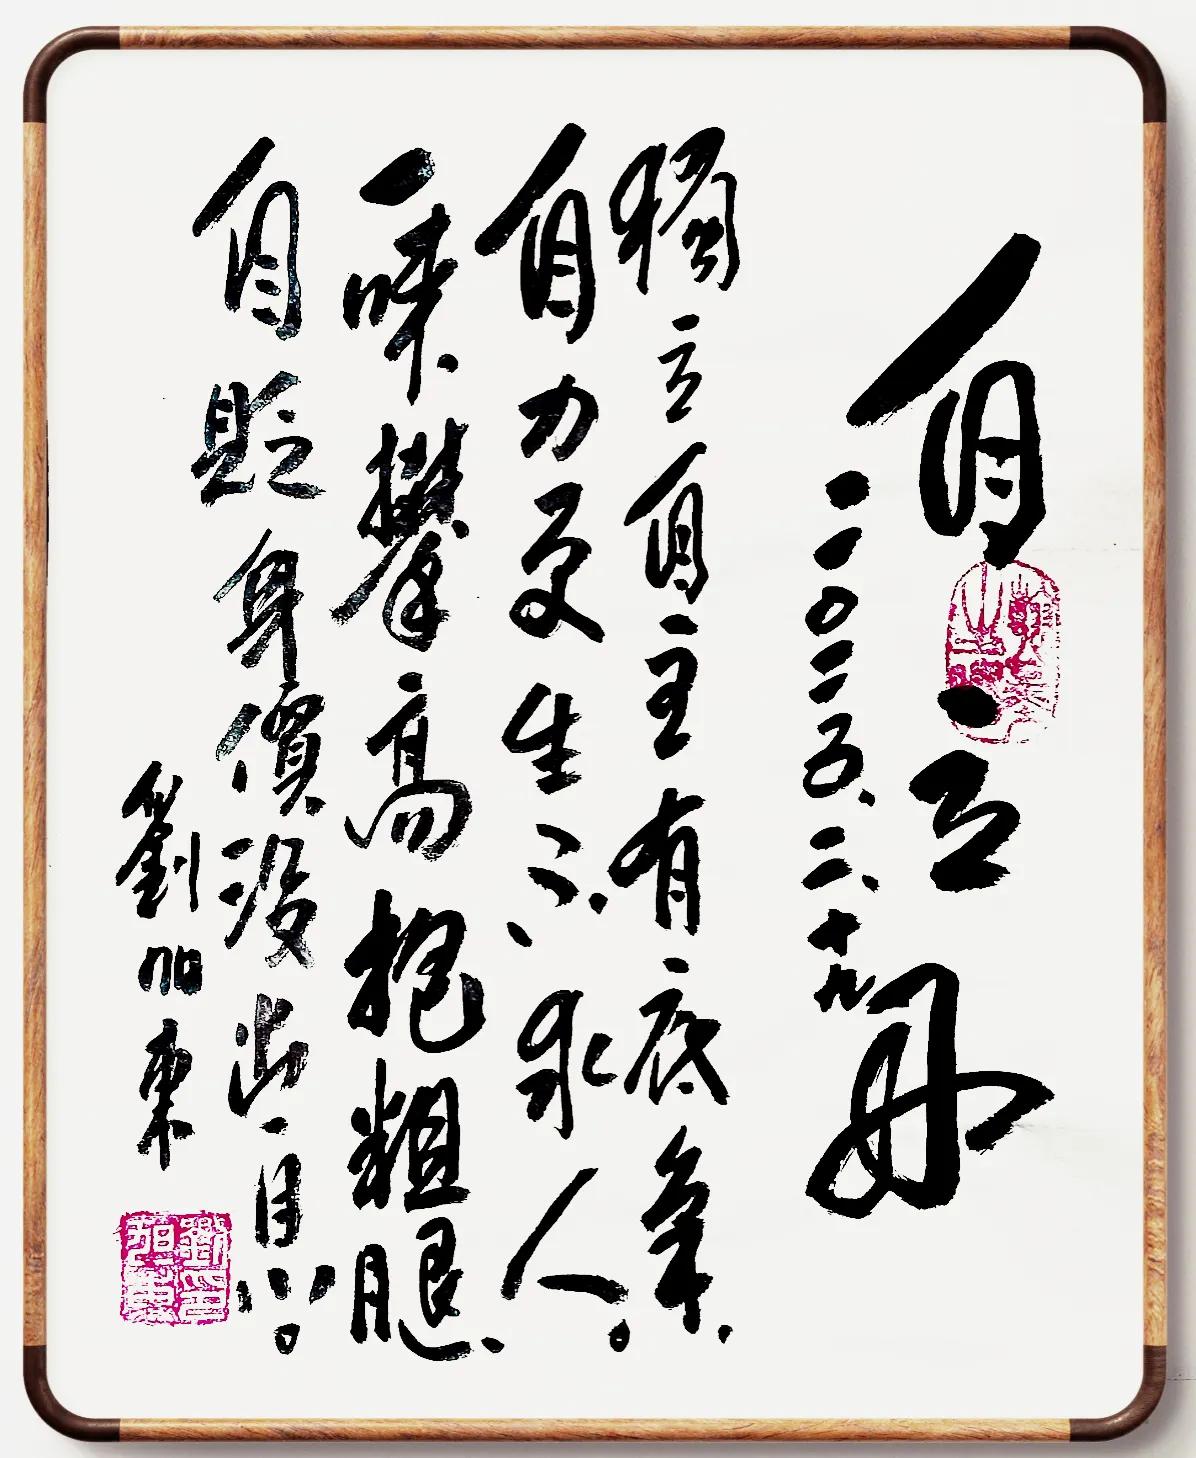 自立
二〇二五.二.十九
獨立自主有底氣.
自力更生不.求人。
一味攀高抱粗腿.
自貶身價沒出息。
劉旭東